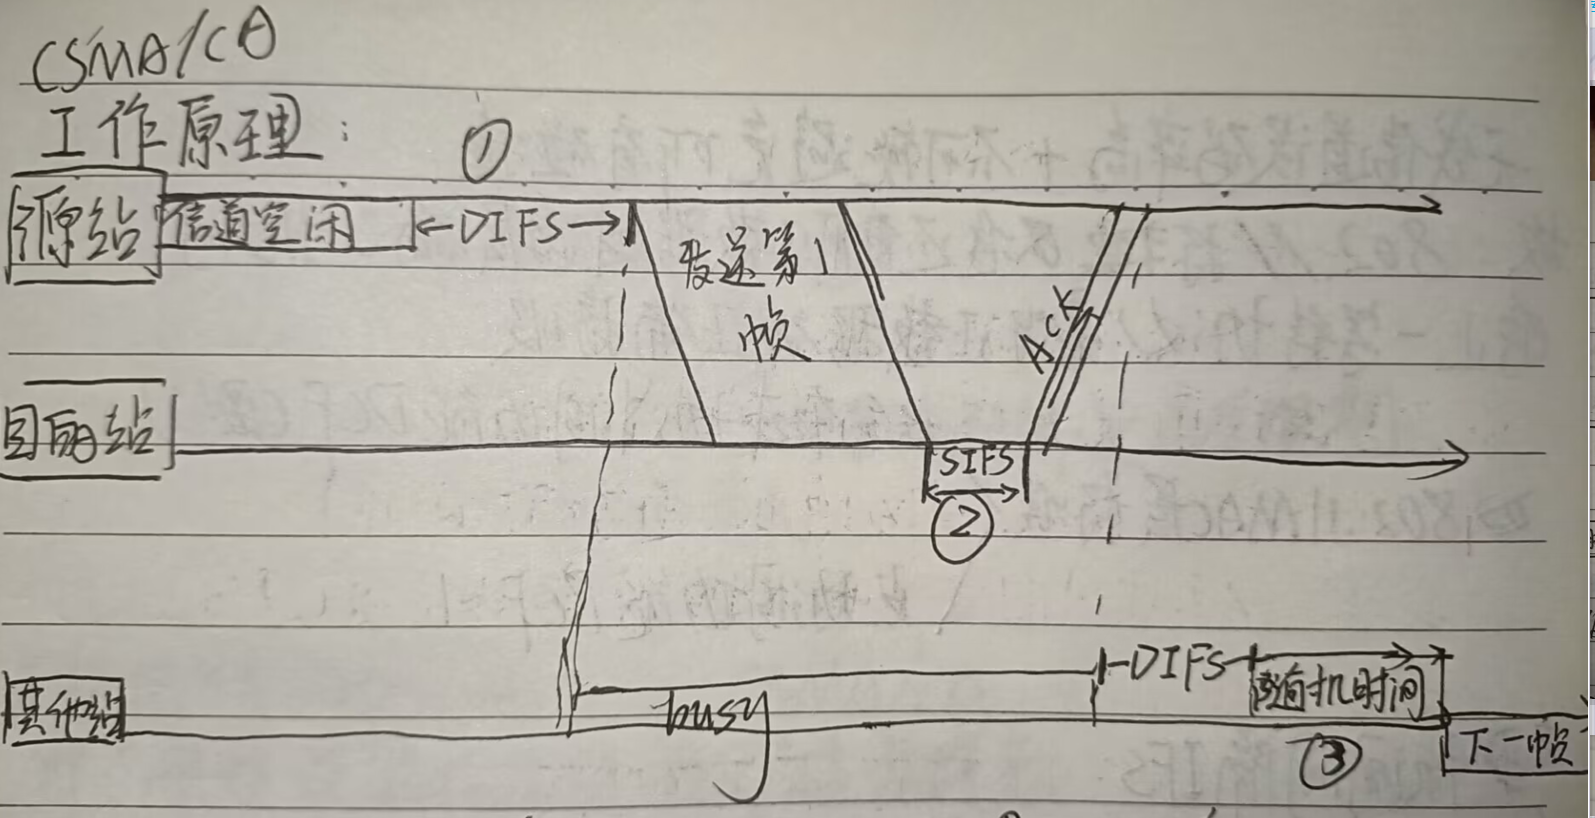 CSMA/CA
工作原理:
①
源站 信道空闲 DIFS
发送第1
帧
ACK
目的站
SIFS
②
DIFS
其他站 busy 随机时间
③ 下一帧